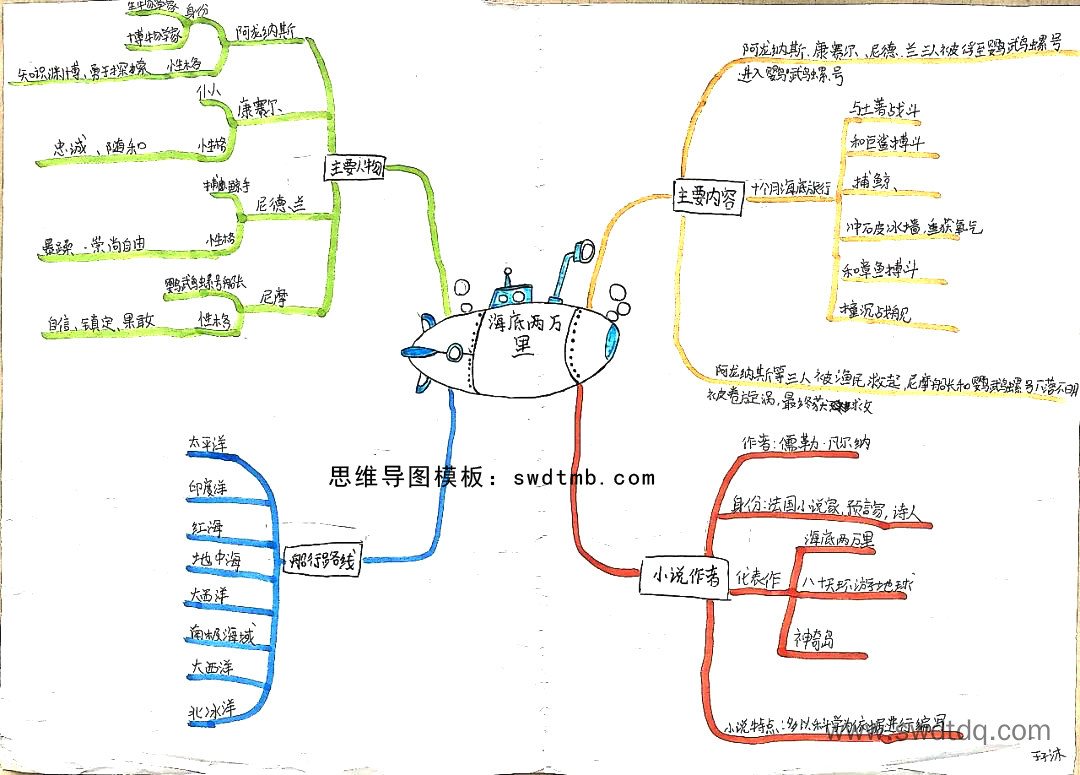 海底两万
里
主要人物
阿龙纳斯
身份
生物学家
博物学家
性格
知识渊博、勇于探索
康赛尔
仆人
性格
忠诚、随和
尼德.兰
捕鲸手
性格
暴躁.崇尚自由
尼摩
鹦鹉螺号船长
性格
自信、镇定、果敢
主要内容
阿龙纳斯、康赛尔、尼德、兰三人被俘至鹦鹉螺号
进入鹦鹉螺号
十个月海底旅行
与土著战斗
和巨鲨搏斗
捕鲸、
冲破冰墙,重获氧气
和章鱼搏斗
撞沉战舰
阿龙纳斯等三人被渔民救起,尼摩船长和鹦鹉螺号下落不明
被卷漩涡,最终获救
船行路线
太平洋
印度洋
红海
地中海
大西洋
南极海域
大西洋
北冰洋
小说作者
作者:儒勒·凡尔纳
身份:法国小说家,预言家,诗人
代表作
海底两万里
八十天环游地球
神奇岛
小说特点:多以科学为依据进行编写
思维导图模板: swdtmb.com
www.swdtdq.com